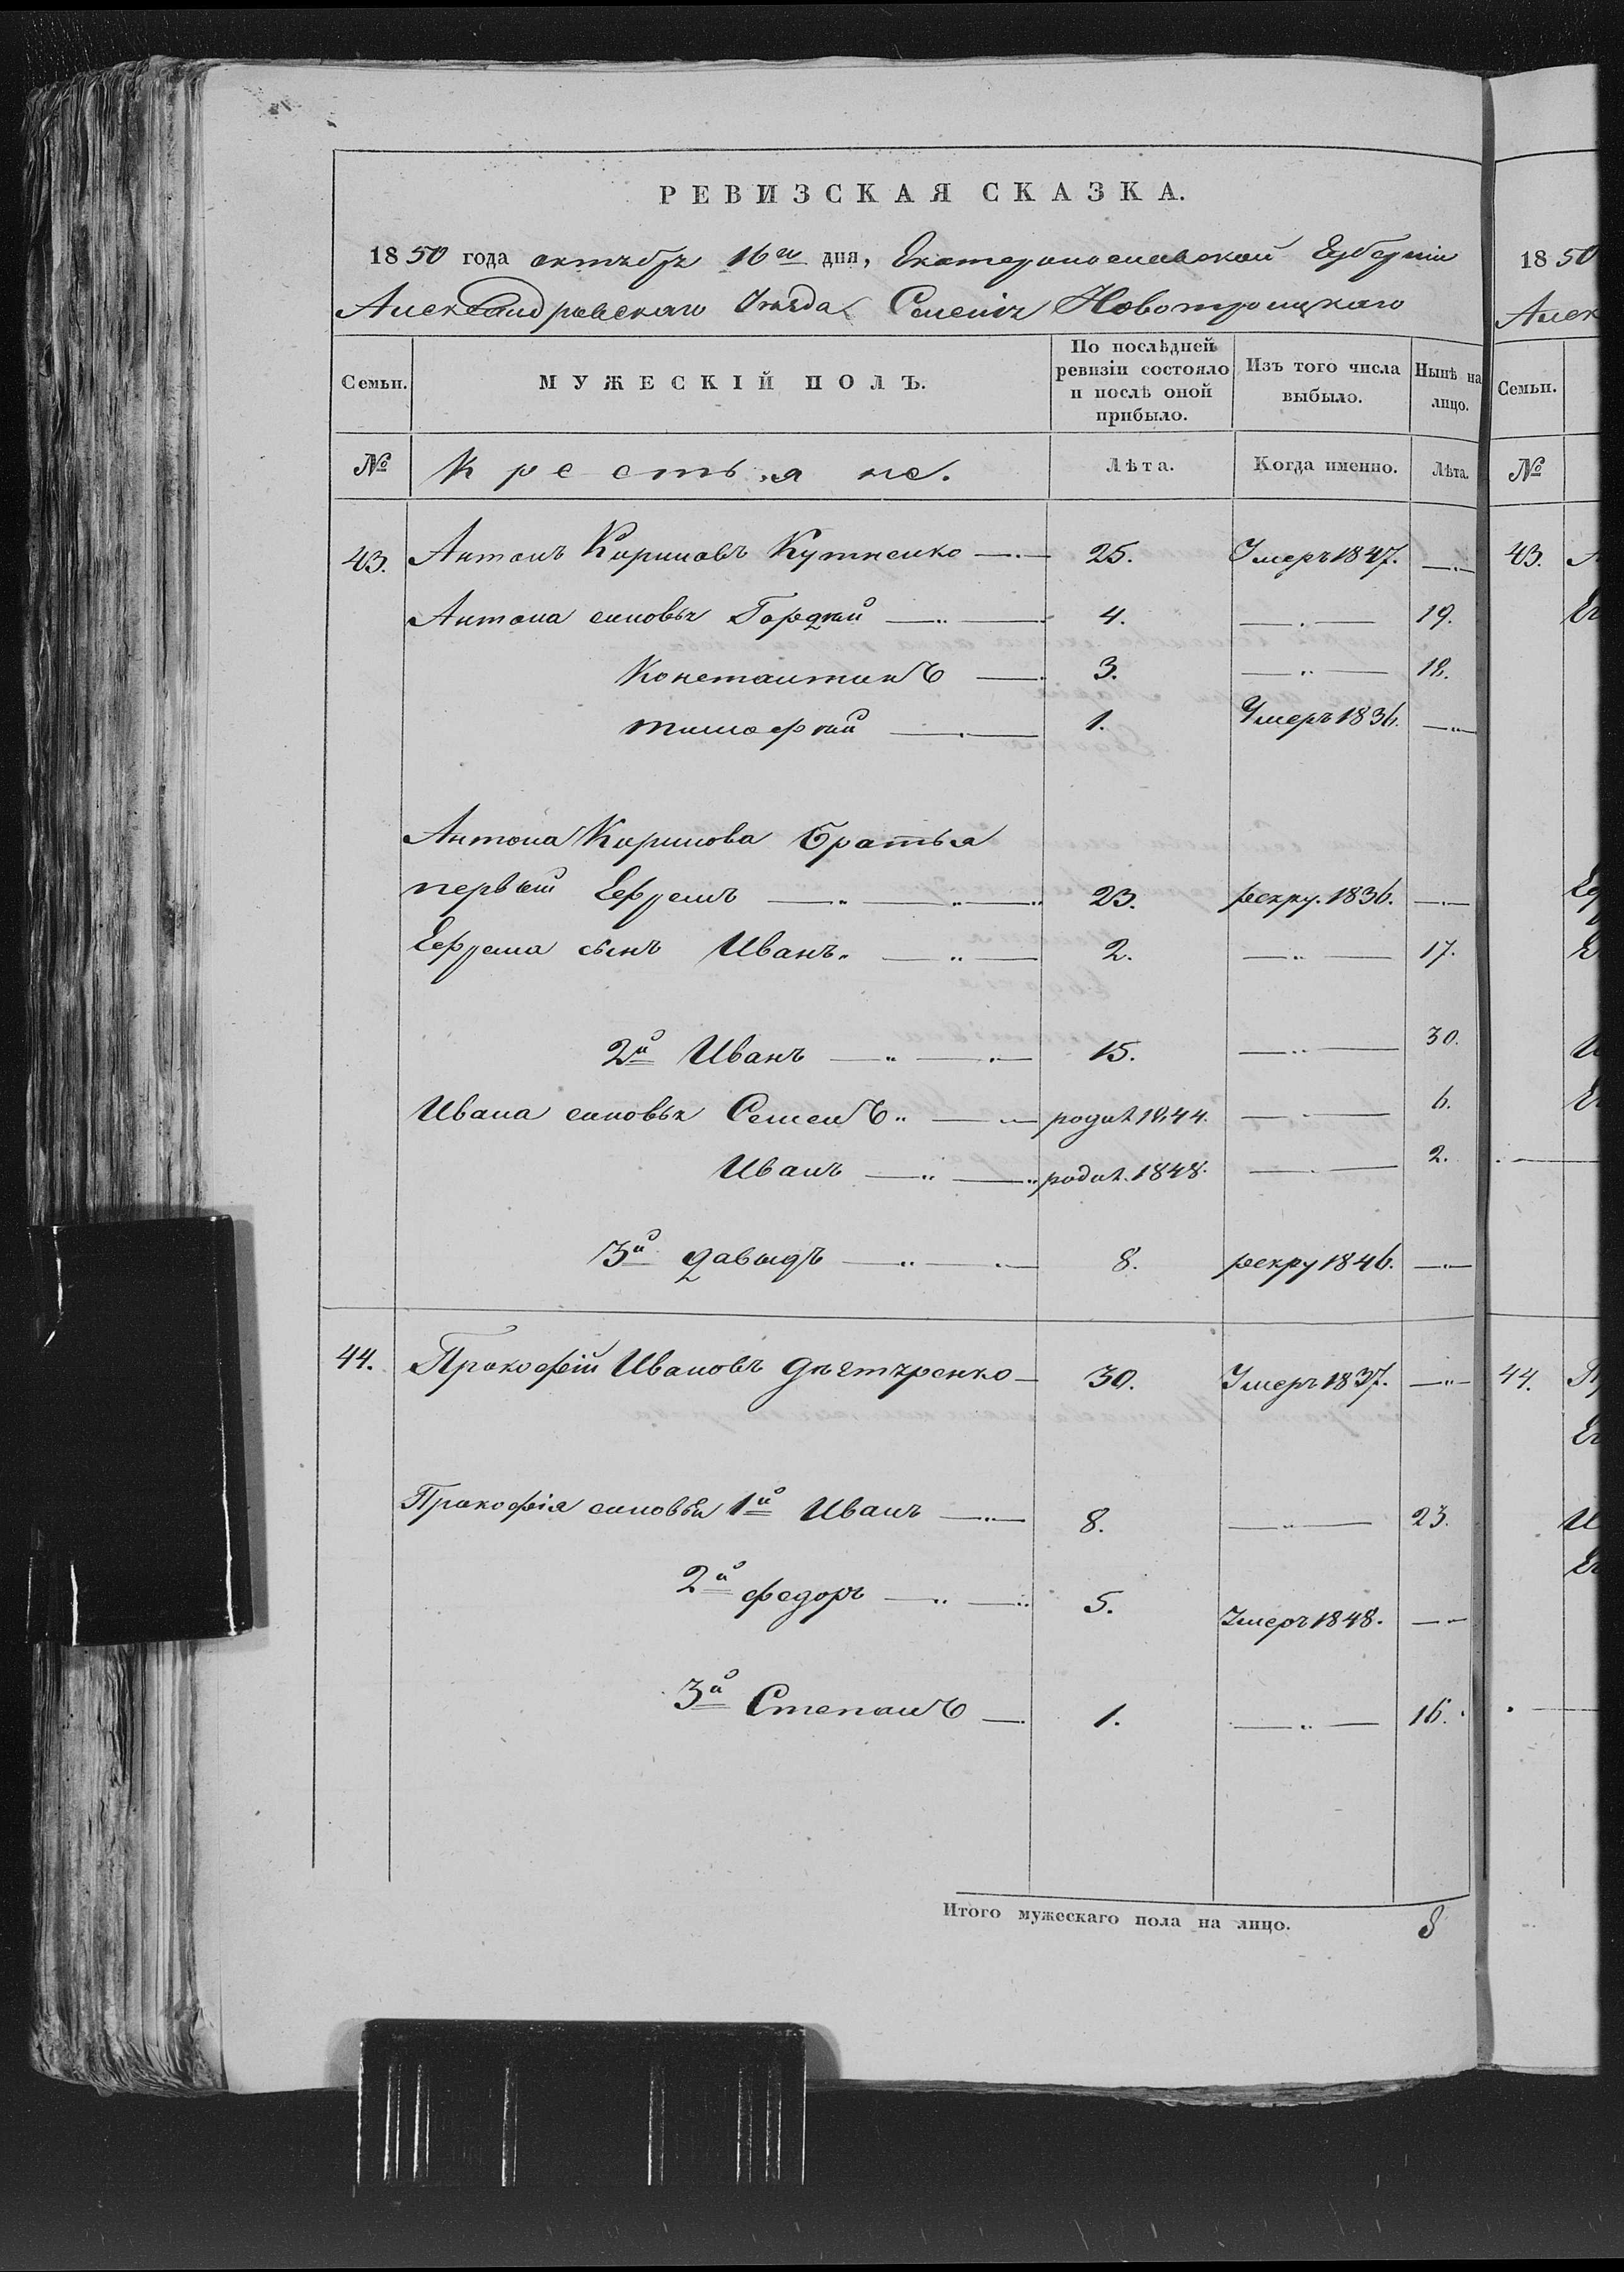 РЕВИЗСКАЯ СКАЗКА.
1850 года октября 16го дня, Екатеринославской Губерніи
Александровскаго Уѣзда Селенія Новотроицкаго
Семьи. МУЖЕСКІЙ ПОЛЪ. По послѣдней ревизіи состояло и послѣ оной прибыло. Изъ того числа выбыло. Нынѣ на лицо.
№ Крестьяне. Лѣта. Когда именно. Лѣта.
43. Антонъ Кириловъ Кутненко 25. Умеръ 1847.
Антона сыновья Гордѣй 4. 19.
Константинъ 3. 18.
тимофѣй 1. Умеръ 1836.
Антона Кирилова братья
первый Ефремъ 23. рекру. 1836.
Ефрема сынъ Иванъ 2. 17.
2й Иванъ 15. 30.
Ивана сыновья Семенъ родил. 1844. 6.
Иванъ родил. 1848. 2.
3й давыдъ 8. рекру 1846.
44. Прокофій Ивановъ 30. Умеръ 1837.
Прокофія сыновья 1й Иванъ 8. 23.
2й федоръ 5. Умеръ 1848.
3й Степанъ 1. 16.
Итого мужескаго пола на лицо. 8
1850
Алек
Семьи.
№
43.
44.